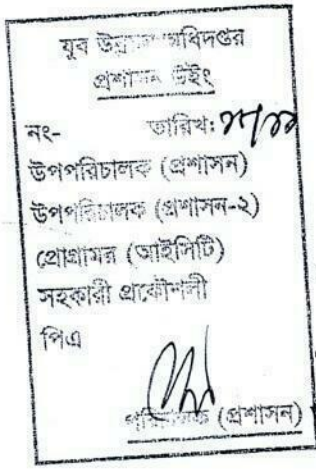 যুব উন্নয়ন অধিদপ্তর
প্রশাসন উইং
নং- তারিখ:
উপপরিচালক (প্রশাসন)
উপপরিচালক (প্রশাসন-২)
প্রোগ্রামর (আইসিটি)
সহকারী প্রকৌশলী
পিএ
পরিচালক (প্রশাসন)